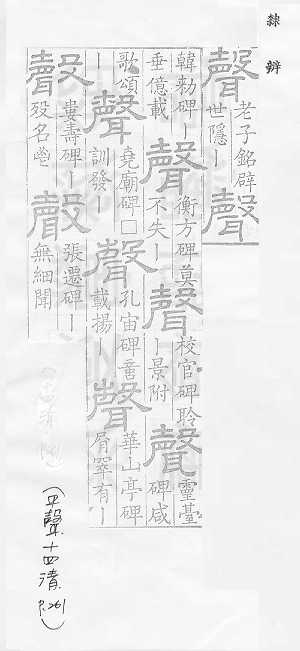 隸辨
聲
老子銘辟
世隱丨
聲
韓勑碑丨
垂億載
聲
衡方碑莫
不失丨
聲
校官碑聆
丨景附
聲
靈臺
碑咸
歌頌
丨
聲
堯廟碑□
訓發丨
聲
孔宙碑垂
載揚丨
聲
華山亭碑
有丨
聲
婁壽碑丨
歿名
聲
張遷碑丨
無細聞
(平聲十四清 P.261)